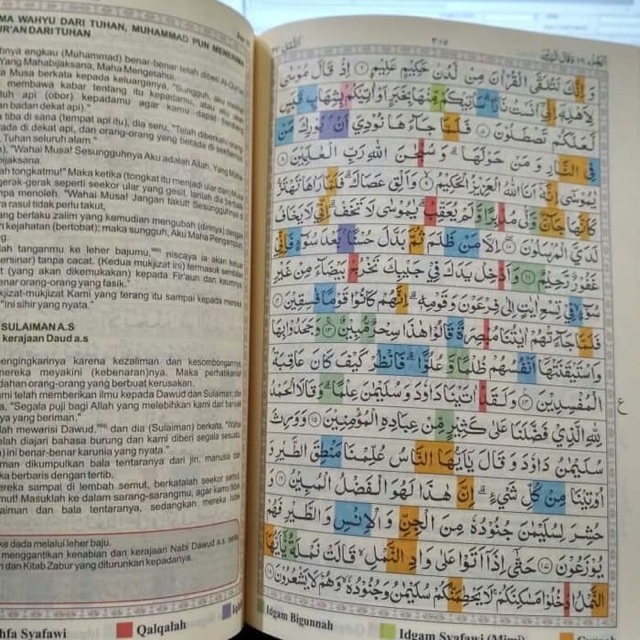 MA WAHYU DARI TUHAN, MUHAMMAD PUN MENERIMA
UR'AN DARI TUHAN
hnya engkau (Muhammad) benar-benar telah diberi Al-Qur'
Yang Mahabijaksana, Maha Mengetahui.
Musa berkata kepada keluarganya, "Sungguh, aku
membawa kabar tentang itu kepadamu, atau aku
api (obor) kepadamu agar kamu dapat
badan dekat api)."
tiba di sana (tempat api itu), dia diseru, "Telah diberkahi orang
rada di dekat api, dan orang-orang yang berada di
Tuhan seluruh alam."
n), "Wahai Musa! Sesungguhnya Aku adalah Allah, Yang
bijaksana.
tongkatmu!" Maka ketika (tongkat itu menjadi ular dan) Musa
gerak-gerak seperti seekor ular yang gesit, larilah dia
npa menoleh. "Wahai Musa! Jangan takut! Sesungguhnya
a rasul tidak perlu takut,
ng berlaku zalim yang kemudian mengubah (dirinya) dengan
h kejahatan (bertobat); maka sungguh, Aku Maha Pengampun
ng.
lah tanganmu ke leher bajumu, niscaya ia akan keluar
ersinar) tanpa cacat. (Kedua mukjizat ini) termasuk sembilan
(yang akan dikemukakan) kepada Fir'aun dan kaumnya
nar orang-orang yang fasik."
kjizat-mukjizat Kami yang terang itu sampai kepada mereka
"Ini sihir yang nyata."
SULAIMAN A.S
kerajaan Daud a.s
engingkarinya karena kezaliman dan kesombongannya
ereka meyakini (kebenaran)nya. Maka perhatikanlah
dahan orang-orang yang berbuat kerusakan.
mi telah memberikan ilmu kepada Dawud dan Sulaiman, dan
"Segala puji bagi Allah yang melebihkan kami dari
ya yang beriman."
mewarisi Dawud, dan dia (Sulaiman) berkata, "Wahai
elah diajari bahasa burung dan kami diberi segala sesuatu
) ini benar-benar karunia yang nyata."
man dikumpulkan bala tentaranya dari jin, manusia dan
berbaris dengan tertib.
ereka sampai di lembah semut, berkatalah seekor semut
mut! Masuklah ke dalam sarang-sarangmu, agar kamu
aiman dan bala tentaranya, sedangkan mereka tidak
ke dada melalui leher baju.
menggantikan kenabian dan kerajaan Nabi Dawud a.s. serta
dan Kitab Zabur yang diturunkan kepadanya.
hfa Syafawi Qalqalah
النَّمْل ٢٧ ٣٧٥ الجزء ١٩
وَإِنَّكَ لَتُلَقَّى الْقُرْاٰنَ مِنْ لَّدُنْ حَكِيْمٍ عَلِيْمٍ ٦ اِذْ قَالَ مُوْسٰى
لِاَهْلِهٖٓ اِنِّيْٓ اٰنَسْتُ نَارًاۗ سَاٰتِيْكُمْ مِّنْهَا بِخَبَرٍ اَوْ اٰتِيْكُمْ بِشِهَابٍ قَبَسٍ
لَّعَلَّكُمْ تَصْطَلُوْنَ ٧ فَلَمَّا جَاۤءَهَا نُوْدِيَ اَنْۢ بُوْرِكَ مَنْ
فِى النَّارِ وَمَنْ حَوْلَهَاۗ وَسُبْحٰنَ اللّٰهِ رَبِّ الْعٰلَمِيْنَ ٨
يٰمُوْسٰٓى اِنَّهٗٓ اَنَا اللّٰهُ الْعَزِيْزُ الْحَكِيْمُ ٩ وَاَلْقِ عَصَاكَۗ فَلَمَّا رَاٰهَا تَهْتَزُّ
كَاَنَّهَا جَاۤنٌّ وَّلّٰى مُدْبِرًا وَّلَمْ يُعَقِّبْۗ يٰمُوْسٰى لَا تَخَفْۗ اِنِّيْ لَا يَخَافُ
لَدَيَّ الْمُرْسَلُوْنَ ١٠ اِلَّا مَنْ ظَلَمَ ثُمَّ بَدَّلَ حُسْنًاۢ بَعْدَ سُوْۤءٍ فَاِنِّيْ
غَفُوْرٌ رَّحِيْمٌ ١١ وَاَدْخِلْ يَدَكَ فِيْ جَيْبِكَ تَخْرُجْ بَيْضَاۤءَ مِنْ غَيْرِ
سُوْۤءٍۙ فِيْ تِسْعِ اٰيٰتٍ اِلٰى فِرْعَوْنَ وَقَوْمِهٖۗ اِنَّهُمْ كَانُوْا قَوْمًا فٰسِقِيْنَ ١٢
فَلَمَّا جَاۤءَتْهُمْ اٰيٰتُنَا مُبْصِرَةً قَالُوْا هٰذَا سِحْرٌ مُّبِيْنٌ ١٣ وَجَحَدُوْا بِهَا
وَاسْتَيْقَنَتْهَآ اَنْفُسُهُمْ ظُلْمًا وَّعُلُوًّاۗ فَانْظُرْ كَيْفَ كَانَ عَاقِبَةُ
الْمُفْسِدِيْنَ ١٤ وَلَقَدْ اٰتَيْنَا دَاوٗدَ وَسُلَيْمٰنَ عِلْمًاۗ وَقَالَا الْحَمْدُ
لِلّٰهِ الَّذِيْ فَضَّلَنَا عَلٰى كَثِيْرٍ مِّنْ عِبَادِهِ الْمُؤْمِنِيْنَ ١٥ وَوَرِثَ
سُلَيْمٰنُ دَاوٗدَ وَقَالَ يٰٓاَيُّهَا النَّاسُ عُلِّمْنَا مَنْطِقَ الطَّيْرِ وَ
اُوْتِيْنَا مِنْ كُلِّ شَيْءٍۗ اِنَّ هٰذَا لَهُوَ الْفَضْلُ الْمُبِيْنُ ١٦ وَ
حُشِرَ لِسُلَيْمٰنَ جُنُوْدُهٗ مِنَ الْجِنِّ وَالْاِنْسِ وَالطَّيْرِ فَهُمْ
يُوْزَعُوْنَ ١٧ حَتّٰٓى اِذَآ اَتَوْا عَلٰى وَادِ النَّمْلِۙ قَالَتْ نَمْلَةٌ يّٰٓاَيُّهَا
النَّمْلُ ادْخُلُوْا مَسٰكِنَكُمْۚ لَا يَحْطِمَنَّكُمْ سُلَيْمٰنُ وَجُنُوْدُهٗۙ وَهُمْ لَا يَشْعُرُوْنَ ١٨
ع
Idgam Bigunnah Idgam Syafawi (Mimi)